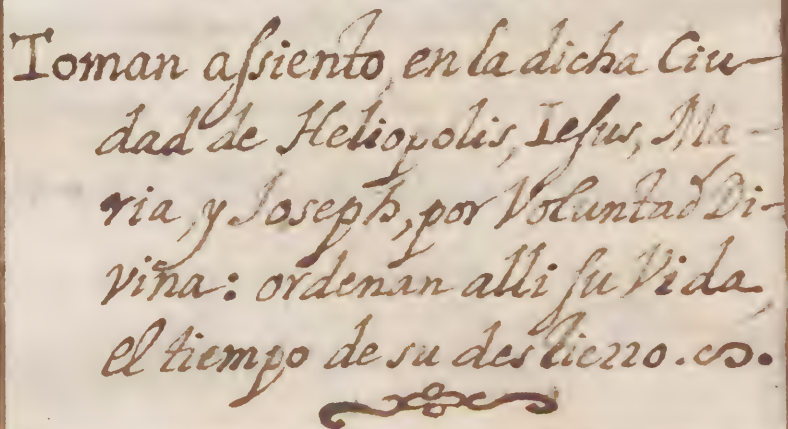 Toman assiento, en la dicha Ciu-
dad de Heliopolis, Iesus, Ma-
ria, y Joseph, por Voluntad Di-
vina: ordenan alli su Vida
el tiempo de su destierro.